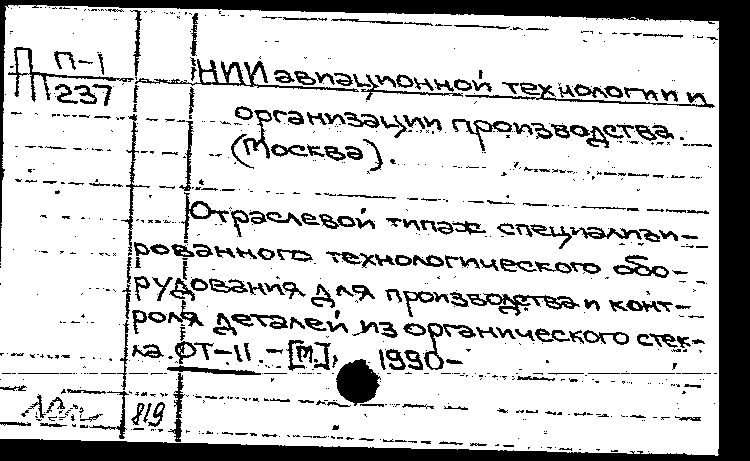 П П-1
237
НИИ авиационной технологии и
организации производства.
(Москва).
Отраслевой типаж специализи-
рованного технологического обо-
рудования для производства и конт-
роля деталей из органического стек-
ла. ОТ-11. - [М.], 1990-
819